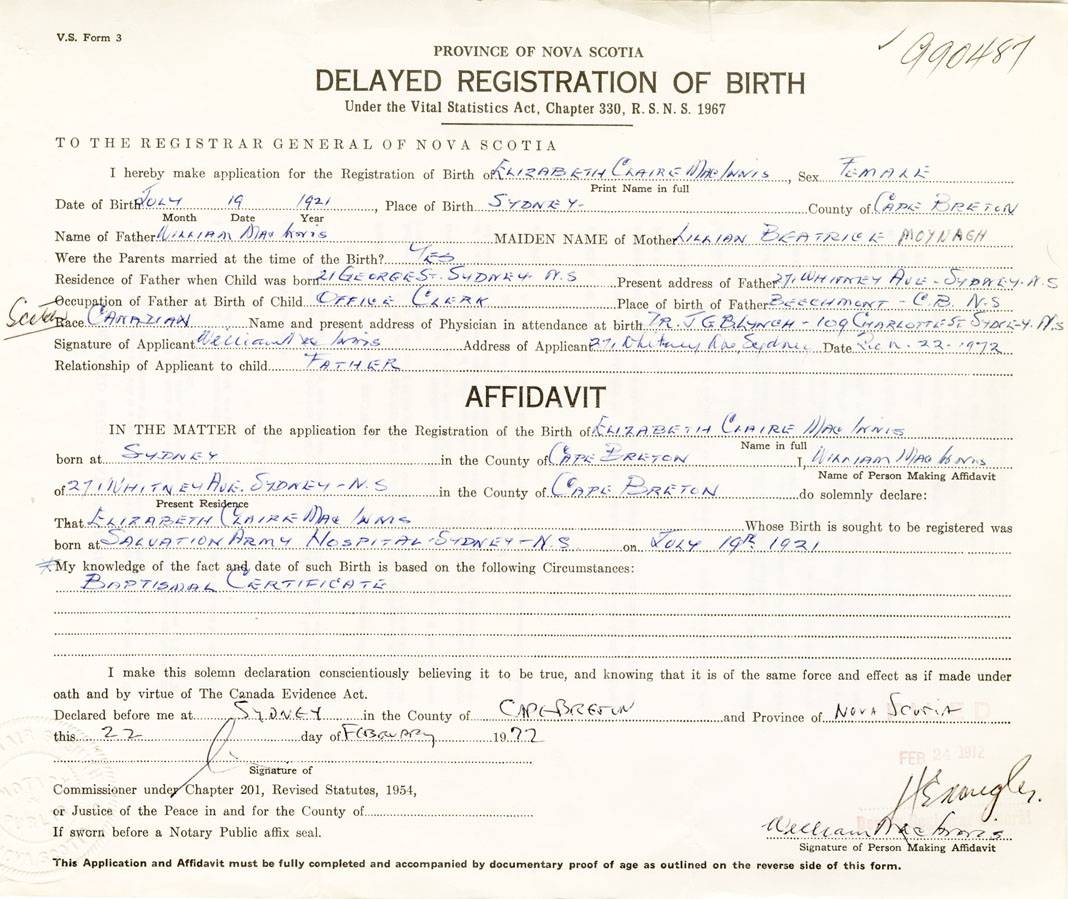 V.S. Form 3
990487
PROVINCE OF NOVA SCOTIA
DELAYED REGISTRATION OF BIRTH
Under the Vital Statistics Act, Chapter 330, R.S.N.S. 1967
TO THE REGISTRAR GENERAL OF NOVA SCOTIA
I hereby make application for the Registration of Birth of ELIZABETH CLAIRE MAC INNIS, Sex FEMALE
Print Name in full
Date of Birth JULY 19 1921, Place of Birth SYDNEY- County of CAPE BRETON
Month Date Year
Name of Father WILLIAM MAC INNIS MAIDEN NAME of Mother LILLIAN BEATRICE MOYNAGH
Were the Parents married at the time of the Birth? YES
Residence of Father when Child was born 21 GEORGE ST. SYDNEY- N.S Present address of Father 271 WHITNEY AVE- SYDNEY. N.S
Occupation of Father at Birth of Child OFFICE CLERK Place of birth of Father BEECHMONT - C.B. N.S
Race CANADIAN Name and present address of Physician in attendance at birth DR. J G B LYNCH - 109 CHARLOTTE ST SYDNEY. N.S
Signature of Applicant William Mac Innis Address of Applicant 271 Whitney Ave, Sydney Date 22-1972
Relationship of Applicant to child FATHER
AFFIDAVIT
IN THE MATTER of the application for the Registration of the Birth of ELIZABETH CLAIRE MAC INNIS
Name in full
born at SYDNEY in the County of CAPE BRETON I, WILLIAM MAC INNIS
Name of Person Making Affidavit
of 271 WHITNEY AVE. SYDNEY - N.S in the County of CAPE BRETON do solemnly declare:
Present Residence
That ELIZABETH CLAIRE MAC INNIS Whose Birth is sought to be registered was
born at SALVATION ARMY HOSPITAL-SYDNEY-N.S on JULY 19th 1921
My knowledge of the fact and date of such Birth is based on the following Circumstances:
BAPTISMAL CERTIFICATE
I make this solemn declaration conscientiously believing it to be true, and knowing that it is of the same force and effect as if made under
oath and by virtue of The Canada Evidence Act.
Declared before me at SYDNEY in the County of CAPE BRETON and Province of NOVA SCOTIA
this 22 day of FEBRUARY 1972
FEB 24 1972
Signature of
Commissioner under Chapter 201, Revised Statutes, 1954,
or Justice of the Peace in and for the County of
If sworn before a Notary Public affix seal.
William Mac Innis
Signature of Person Making Affidavit
This Application and Affidavit must be fully completed and accompanied by documentary proof of age as outlined on the reverse side of this form.